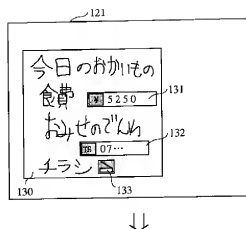 121
今日のおかいもの
食費 ¥ 5250 131
おみせのでんわ
132
☎ 07…
チラシ
130 133